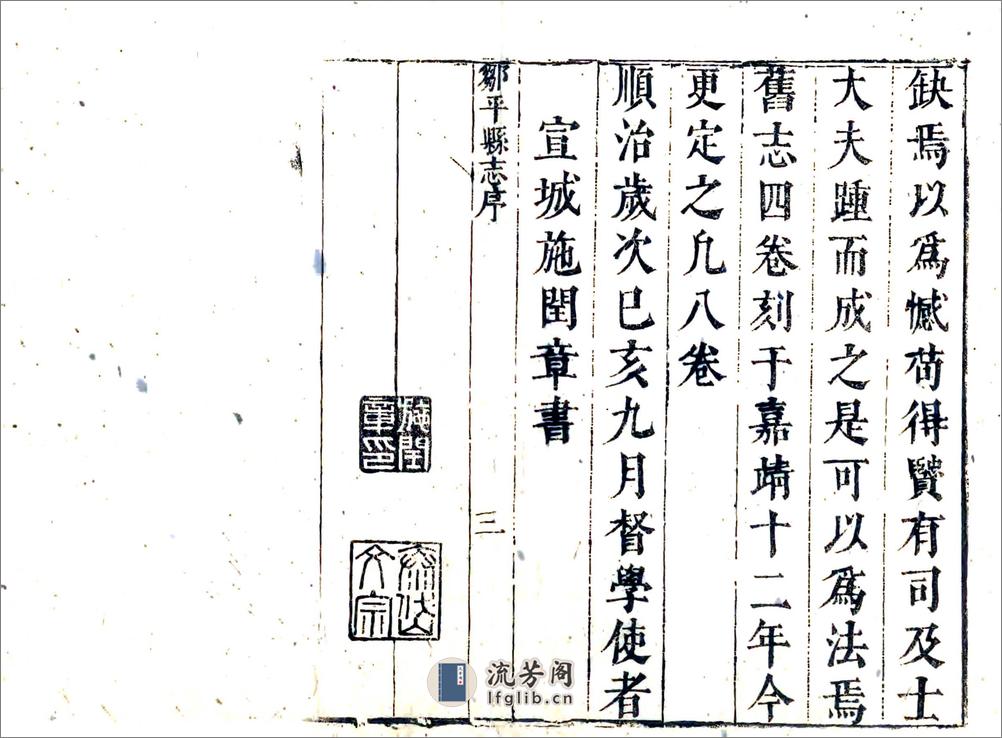 缺焉以爲憾苟得賢有司及士
大夫踵而成之是可以爲法焉
舊志四卷刻于嘉靖十二年今
更定之凡八卷
順治歲次巳亥九月督學使者
宣城施閏章書
鄒平縣志序
三
施閏章印
泰岱文宗
流芳阁
lfglib.cn